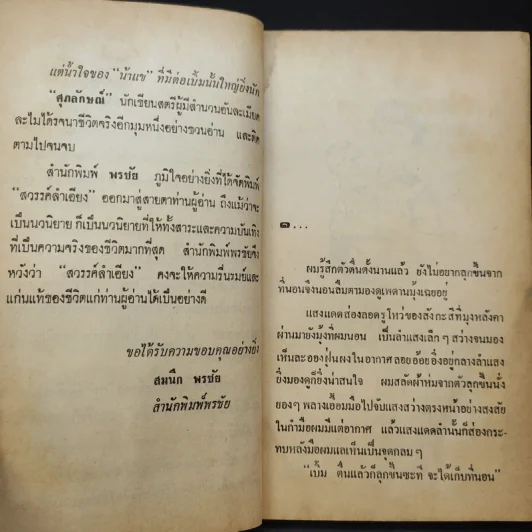 แต่น้ำใจของ "น้าแข" ที่มีต่อเบิ้มนั้นใหญ่ยิ่งนัก
"สุภลักษณ์" นักเขียนสตรีผู้มีสำนวนอันละเมียด
ละไมได้รจนาชีวิตจริงอีกมุมหนึ่งอย่างชวนอ่าน และติด
ตามไปจนจบ
สำนักพิมพ์ พรชัย ภูมิใจอย่างยิ่งที่ได้จัดพิมพ์
"สวรรค์ลำเอียง" ออกมาสู่สายตาท่านผู้อ่าน ถึงแม้ว่าจะ
เป็นนวนิยาย ก็เป็นนวนิยายที่ให้ทั้งสาระและความบันเทิง
ที่เป็นความจริงของชีวิตมากที่สุด สำนักพิมพ์พรชัยจึง
หวังว่า "สวรรค์ลำเอียง" คงจะให้ความรื่นรมย์และ
แก่นแท้ของชีวิตแก่ท่านผู้อ่านได้เป็นอย่างดี
ขอได้รับความขอบคุณอย่างยิ่ง
สมนึก พรชัย
สำนักพิมพ์พรชัย
๑...
ผมรู้สึกตัวตื่นตั้งนานแล้ว ยังไม่อยากลุกขึ้นจาก
ที่นอนจึงนอนลืมตามองดูเพดานมุ้งเฉยอยู่
แสงแดดส่องลอดรูโหว่ของสังกะสีที่มุงหลังคา
ผ่านมายังมุ้งที่ผมนอน เป็นลำแสงเล็กๆ สว่างจนมอง
เห็นละอองฝุ่นผงในอากาศ ลอยอ้อยอิ่งอยู่กลางลำแสง
ยิ่งมองดูก็ยิ่งน่าสนใจ ผมสลัดผ้าห่มจากตัวลุกขึ้นนั่ง
ยองๆ พลางเอื้อมมือไปจับแสงสว่างตรงหน้าอย่างสงสัย
ในกำมือผมมีแต่อากาศ แล้วแสงแดดลำนั้นก็ส่องกระ-
ทบหลังมือผมแลเห็นเป็นจุดกลมๆ
"เบิ้ม ตื่นแล้วก็ลุกขึ้นซะที จะได้เก็บที่นอน"